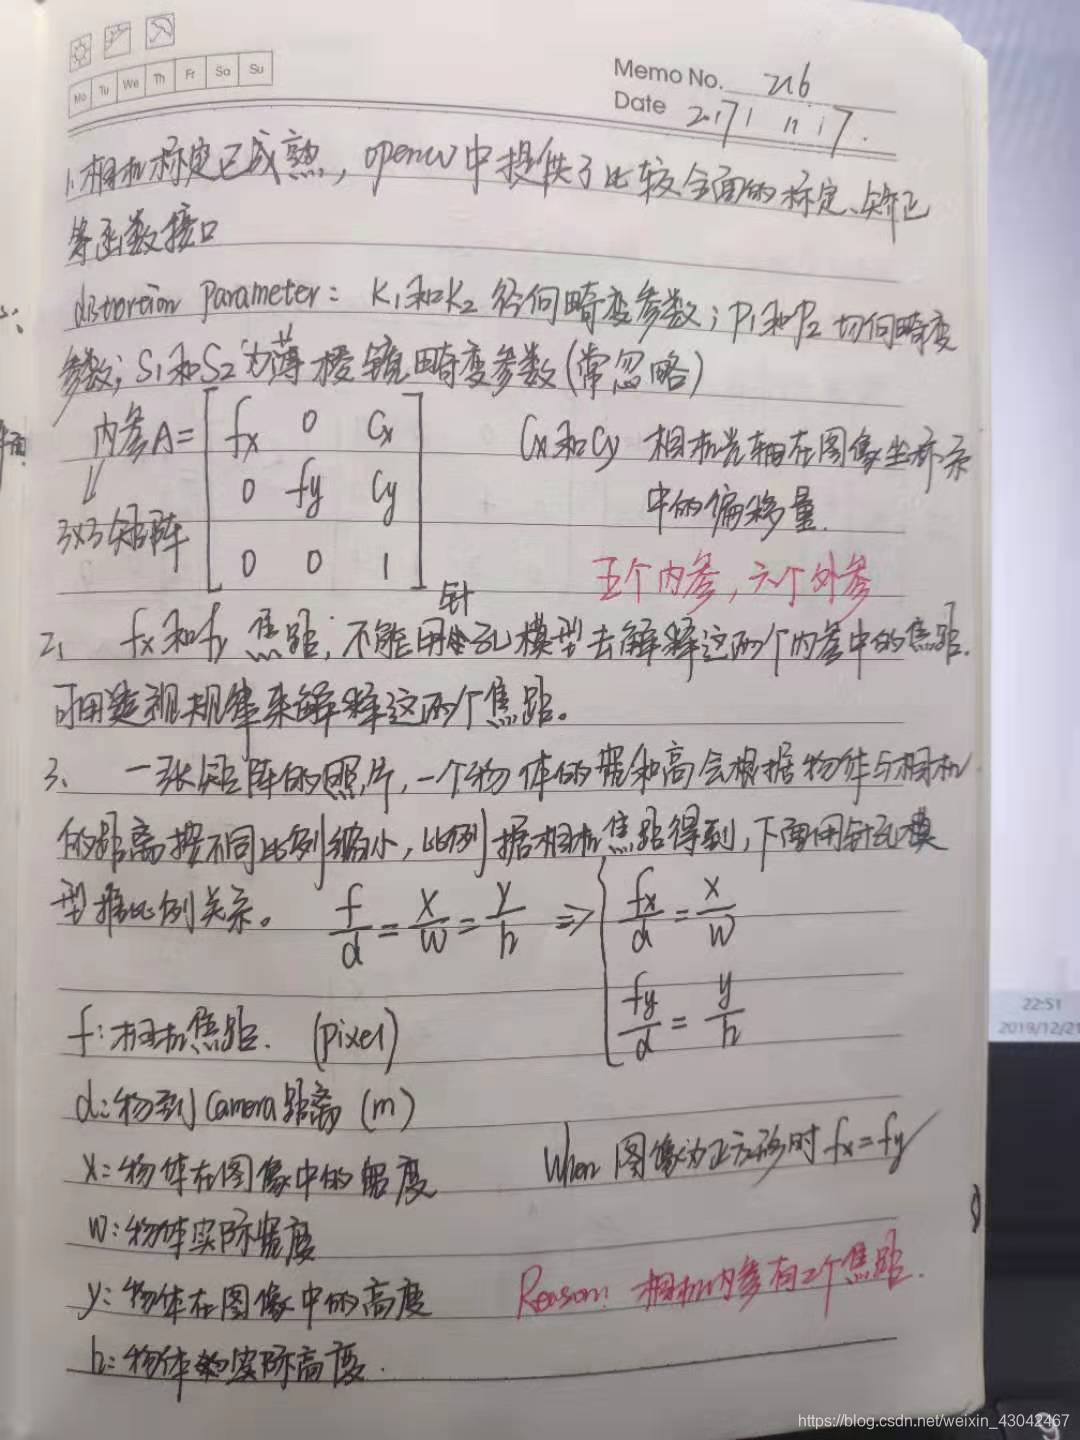 Mo Tu We Th Fr Sa Su
Memo No. 216
Date 2017 / 11 / 7.
1. 相机标定已成熟，opencv中提供了比较全面的标定、矫正
等函数接口
distortion Parameter: K₁和K₂ 径向畸变参数；P₁和P₂ 切向畸变
参数；S₁和S₂为薄棱镜畸变参数(常忽略)
内参A= [fx 0 Cx
0 fy Cy
0 0 1]
3x3矩阵
Cx和Cy 相机光轴在图像坐标系
中的偏移量.
五个内参，六个外参
2、 fx和fy 焦距；不能用针孔模型去解释这两个内参中的焦距.
可用透视规律来解释这两个焦距。
3、 一张矩阵的照片，一个物体的宽和高会根据物体与相机
的距离按不同比例缩小，比例据相机焦距得到，下面用针孔模
型推比例关系。 f/d = x/w = y/h ⇒ { fx/d = x/w
fy/d = y/h
f: 相机焦距. (pixel)
d: 物到Camera距离 (m)
x: 物体在图像中的宽度
When 图像为正方形时 fx=fy
w: 物体实际宽度
y: 物体在图像中的高度
Reason: 相机内参有2个焦距.
h: 物体实际高度.
22:51
2019/12/21
https://blog.csdn.net/weixin_43042467